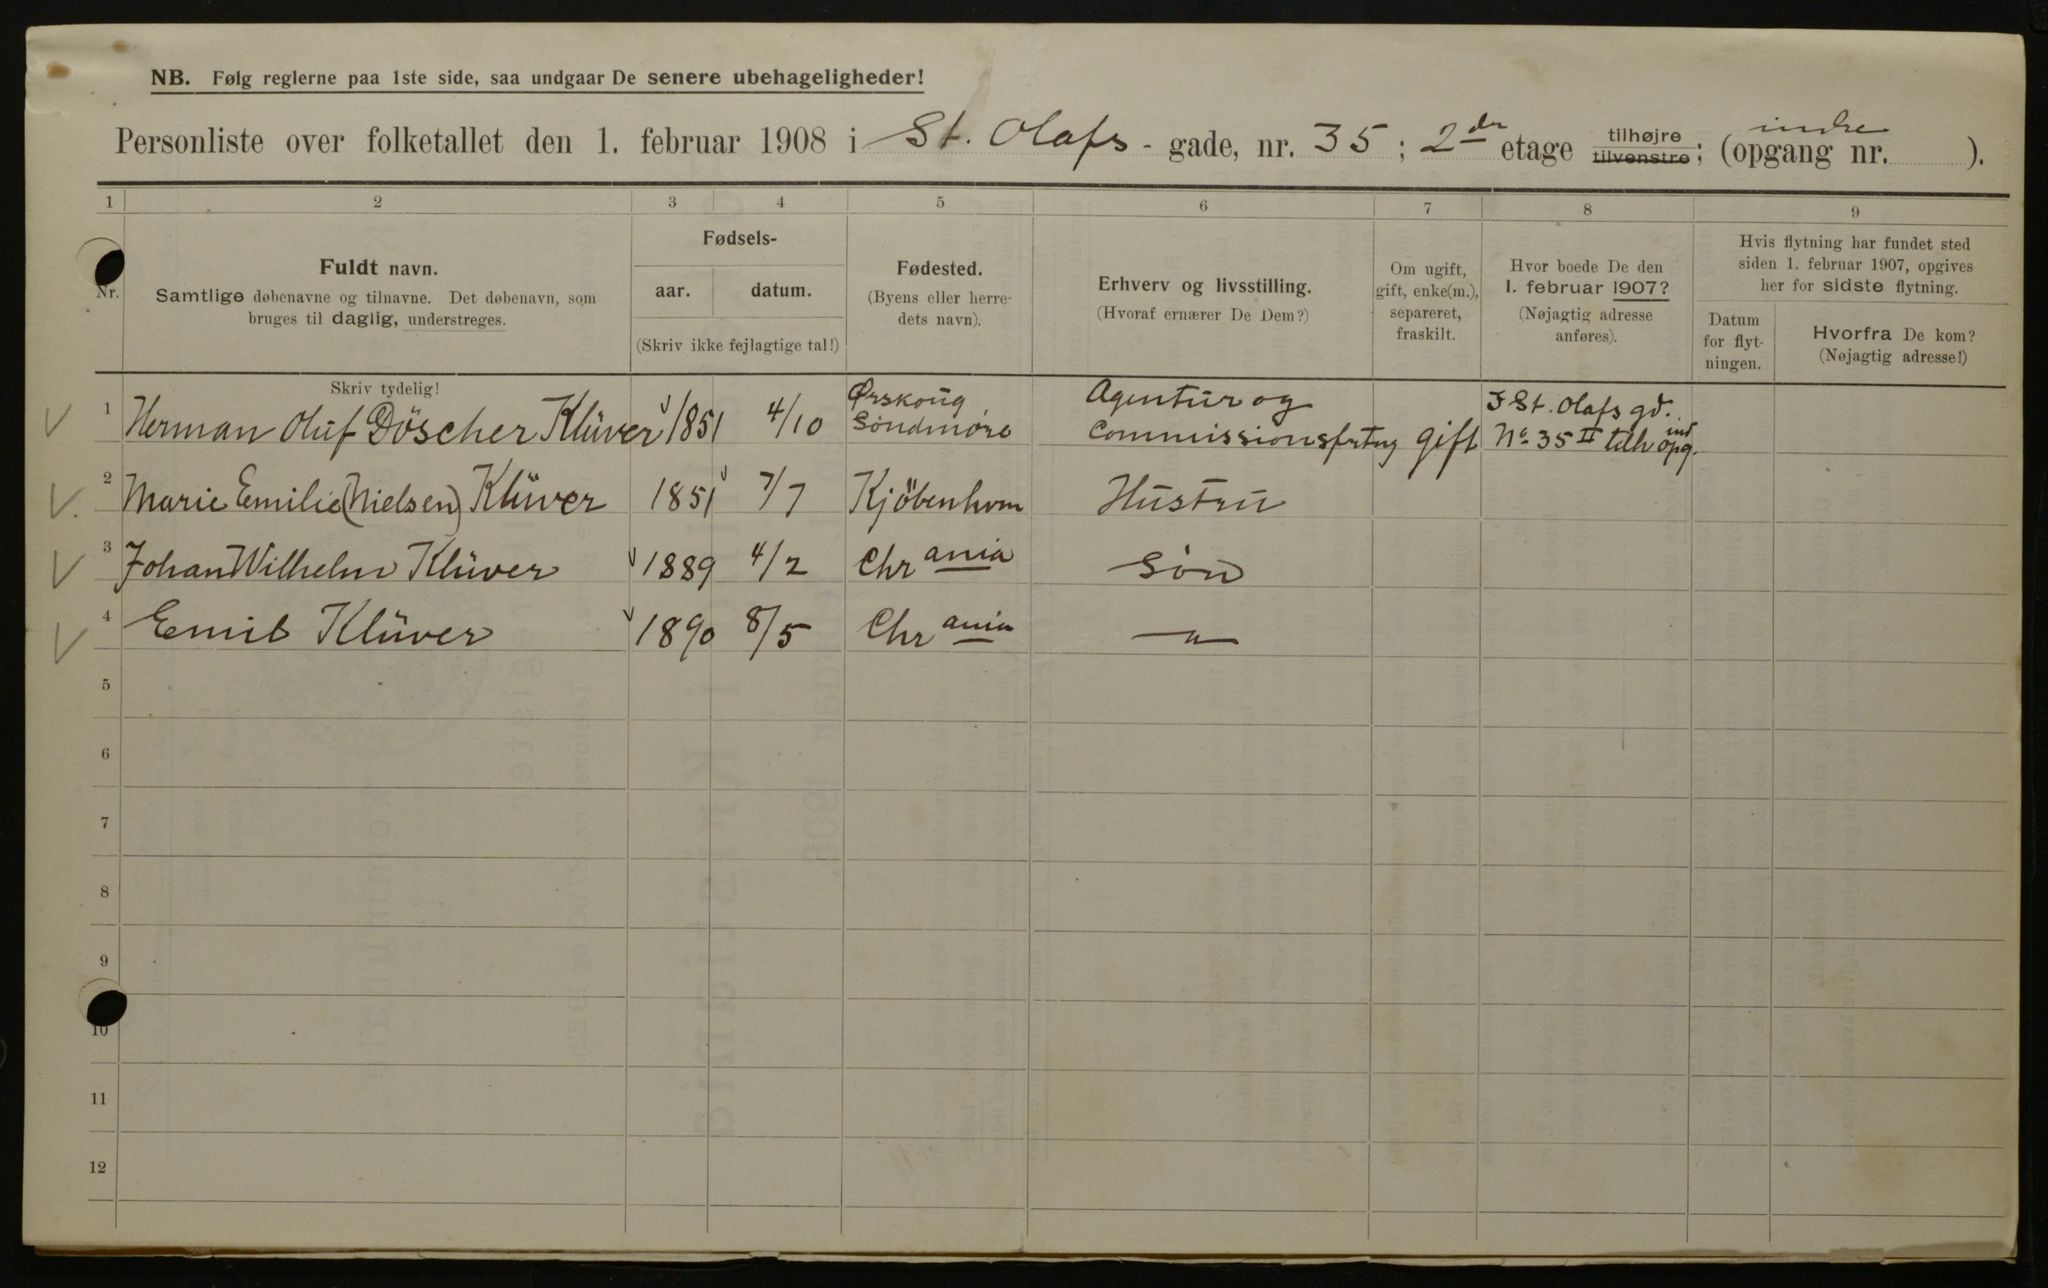 NB. Følg reglerne paa 1ste side, saa undgaar De senere ubehageligheder!
Personliste over folketallet den 1. februar 1908 i St. Olafs - gade, nr. 35 ; 2den etage tilhøjre tilvenstre ; (opgang nr. indre ).
1 2 3 4 5 6 7 8 9
Nr.
Fuldt navn.
Samtlige døbenavne og tilnavne. Det døbenavn, som
bruges til daglig, understreges.
Fødsels-
aar. datum.
(Skriv ikke fejlagtige tal!)
Fødested.
(Byens eller herre-
dets navn).
Erhverv og livsstilling.
(Hvoraf ernærer De Dem?)
Om ugift,
gift, enke(m.),
separeret,
fraskilt.
Hvor boede De den
1. februar 1907?
(Nøjagtig adresse
anføres).
Hvis flytning har fundet sted
siden 1. februar 1907, opgives
her for sidste flytning.
Datum
for flyt-
ningen.
Hvorfra De kom?
(Nøjagtig adresse!)
Skriv tydelig!
1 Herman Oluf Döscher Klüver 1851 4/10 Ørskoug Søndmøre Agentur og Commissionsfrtng gift I St. Olafs gd. No 35 II tilh ind opg.
2 Marie Emilie (Nielsen) Klüver 1851 7/7 Kjöbenhvn Hustru
3 Johan Wilhelm Klüver 1889 4/2 Chrania Søn
4 Emil Klüver 1890 8/5 Chrania — " —
5
6
7
8
9
10
11
12